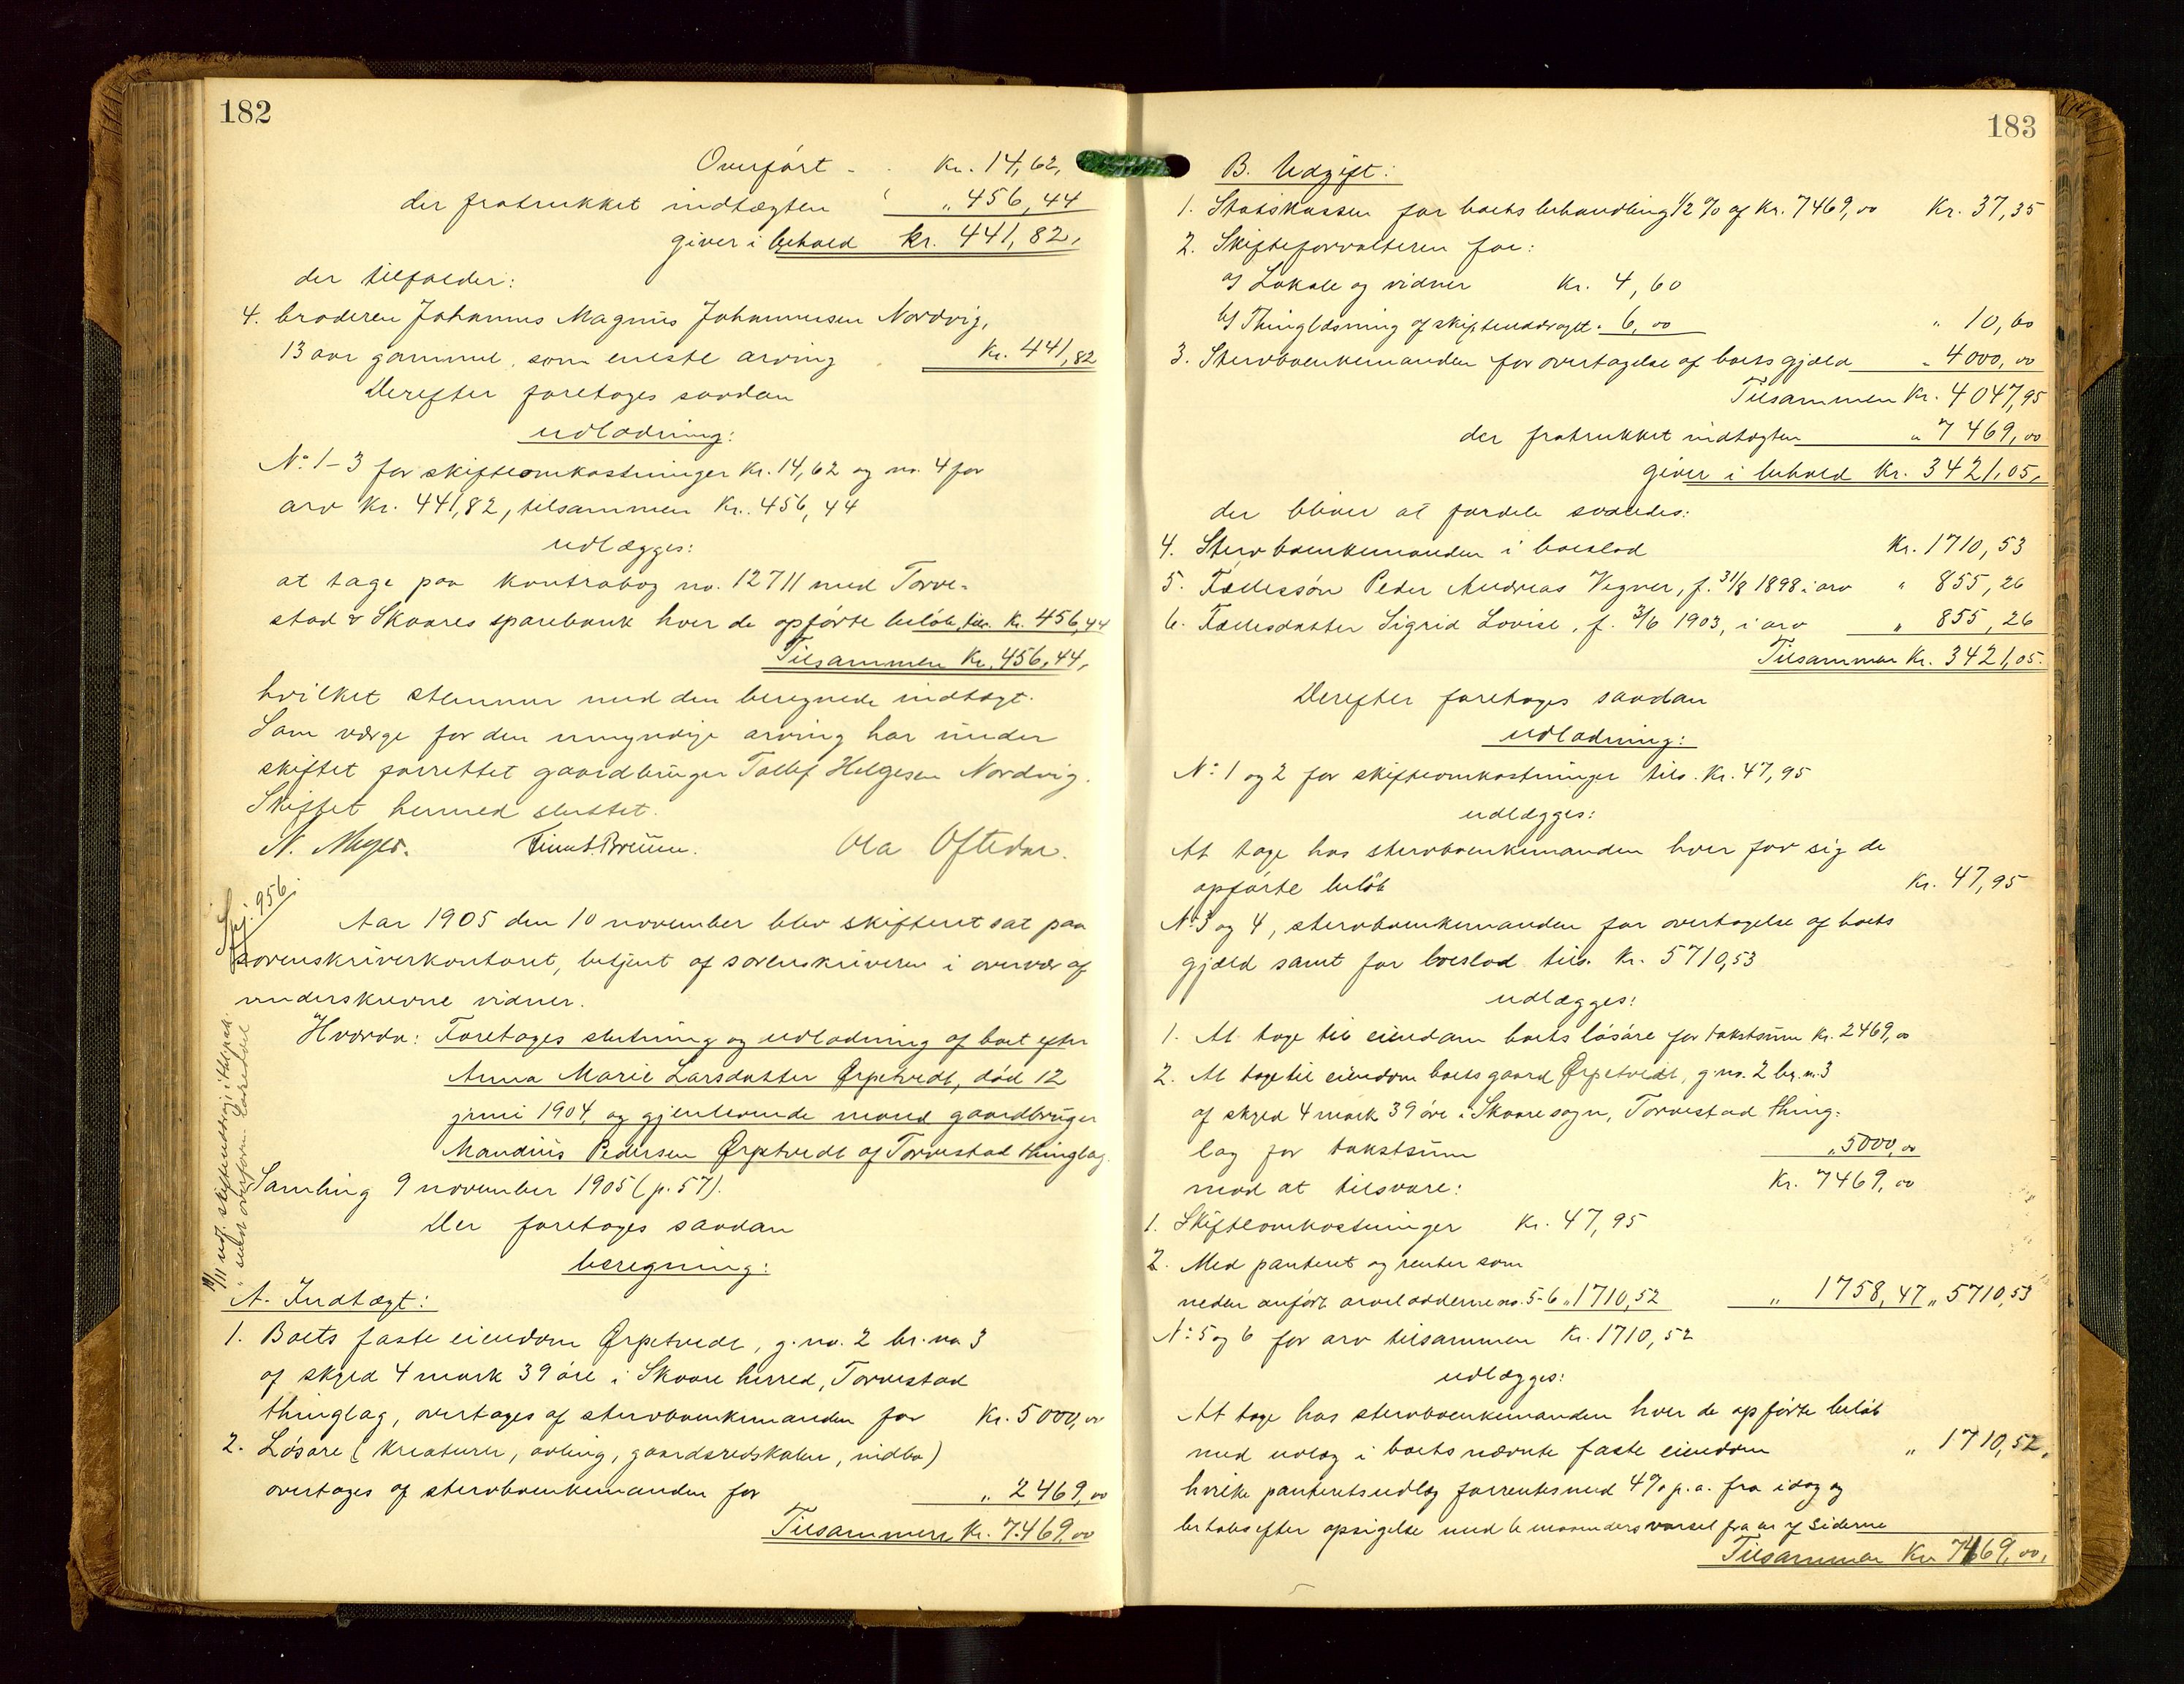 182
Overført - . Kr. 14,62,
der fratrukket indtægten „ 456,44
giver i behold kr. 441,82,
der tilfalder:
4. broderen Johannes Magnus Johannessen Nordvig,
13 aar gammel, som eneste arving . Kr. 441,82
Derefter foretages saadan
udlodning:
No. 1-3 for skifteomkostninger Kr. 14,62 og no. 4 for
arv Kr. 441,82, tilsammen Kr. 456,44
udlægges:
at tage paa kontrabog no. 12711 med Torve-
stad & Skaares sparebank hver de opførte beløb, tils. Kr. 456,44
Tilsammen Kr. 456,44,
hvilket stemmer med den beregnede indtægt.
Som værge for den umyndige arving har under
skiftet forrettet gaardbruger Tollef Helgesen Nordvig.
Skiftet hermed sluttet.
N. Meyer. Ola Oftedal.
956.
Aar 1905 den 10 november blev skifteret sat paa
sorenskriverkontoret, betjent af sorenskriveren i overvær af
underskrevne vidner.
Hvorda: Foretages slutning og udlodning af boet efter
Anna Marie Larsdatter Ørpetvedt, død 12
juni 1904, og gjenlevende mand gaardbruger
Maudius Pedersen Ørpetvedt af Torvestad thinglag.
Samling 9 november 1905 (p. 57).
Der foretages saadan
beregning:
A. Indtægt:
1. Boets faste eiendom Ørpetvedt, g. no. 2 br. no 3
af skyld 4 mark 39 øre i Skaare herred, Torvestad
thinglag, overtages af stervboenkemanden for Kr. 5000,00
2. Løsøre (kreaturer, avling, gaardsredskaber, indbo)
overtages af stervboenkemanden for „ 2469,00
Tilsammen Kr. 7469,00
183
B. Udgift:
1. Statskassen for boets behandling 1/2 % af Kr. 7469,00 Kr. 37,35
2. Skifteforvalteren for:
a) Lokale og vidner Kr. 4,60
b) Thinglæsning af skifteuddraget „ 6,00 „ 10,60
3. Stervboenkemanden for overtagelse af boets gjæld „ 4000,00
Tilsammen Kr. 4047,95
der fratrukket indtægten „ 7469,00
giver i behold Kr. 3421,05,
der bliver at fordele saaledes:
4. Stervboenkemanden i boeslod Kr. 1710,53
5. Fællessøn Peder Andreas Vegner, f. 31/8 1898 i arv „ 855,26
6. Fællesdatter Sigrid Lovise, f. 3/6 1903, i arv „ 855,26
Tilsammen Kr. 3421,05.
Derefter foretages saadan
udlodning:
No. 1 og 2 for skifteomkostninger tils. Kr. 47,95
udlægges:
At tage hos stervboenkemanden hver for sig de
opførte beløb Kr. 47,95
No. 3 og 4, stervboenkemanden for overtagelse af boets
gjæld samt for boeslod tils. Kr. 5710,53
udlægges:
1. At tage til eiendom boets løsøre for takstsum Kr. 2469,00
2. At tage til eiendom boets gaard Ørpetvedt, g. no. 2 br. n. 3
af skyld 4 mark 39 øre i Skaare sogn, Torvestad thing-
lag for takstsum „ 5000,00
mod at tilsvare: Kr. 7469,00
1. Skifteomkostninger Kr. 47,95
2. Med panteret og renter som
neden anført arvelodderne no. 5-6 „ 1710,52 „ 1758,47 „ 5710,53
No. 5 og 6 for arv tilsammen Kr. 1710,52
udlægges:
At tage hos stervboenkemanden hver de opførte beløb
med udlæg i boets nævnte faste eiendom „ 1710,52,
hvilke panteretsudlæg forrentes med 4% p.a. fra idag og
betales efter opsigelse med 6 maaneders varsel fra en af siderne
Tilsammen Kr 7469,00,